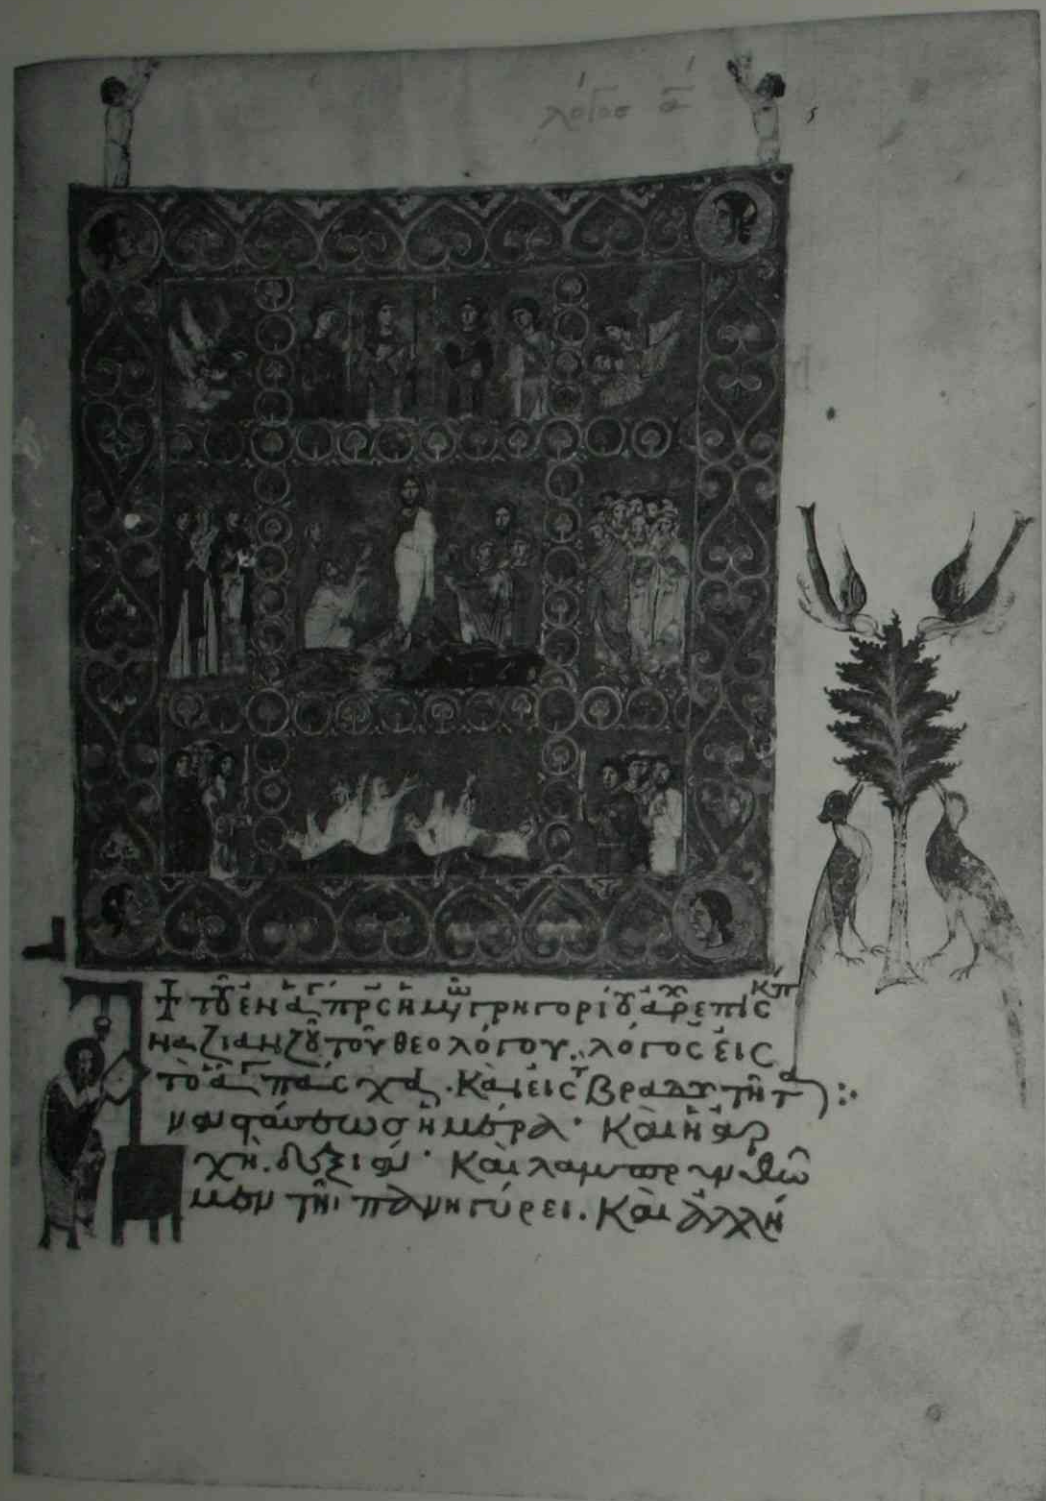 λόγος α
+ τοῦ ἐν ἁγ πρς ἡμῶ γρηγορίου ἀρχεπισκπ
ναζιανζοῦ τοῦ θεολόγου. λόγος εἰς
τὸ ἅγ πάσχα. καὶ εἰς βραδυτῆτα :
ναστάσεως ἡμέρα· καὶ ἡ ἀρ
χὴ. δεξιά· καὶ λαμπρυνθῶ
μεν τῆι πανηγύρει. καὶ ἀλλή